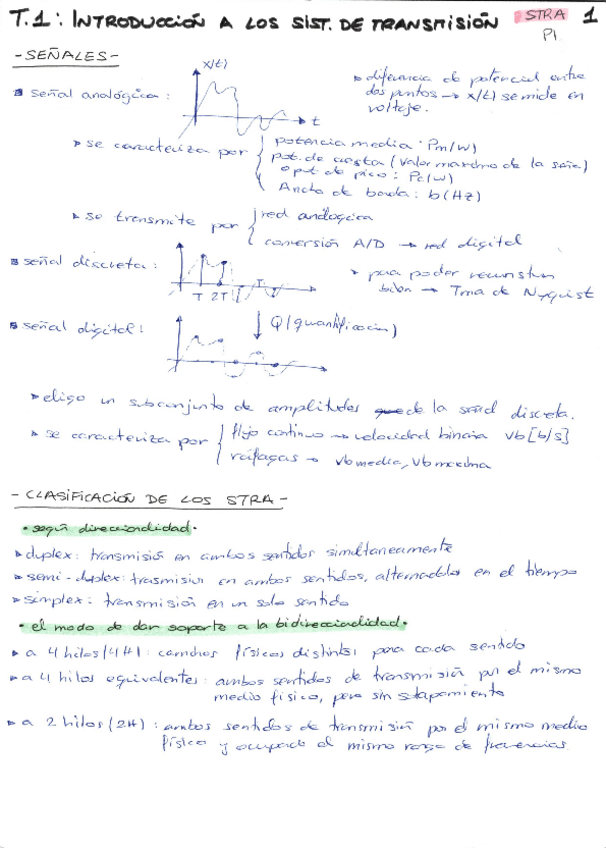 T.1: INTRODUCCIÓN A LOS SIST. DE TRANSMISIÓN STRA 1
P1
- SEÑALES -
x(t)
señal analógica: t
diferencia de potencial entre
dos puntos → x(t) se mide en
voltaje.
se caracteriza por potencia media: Pm(W)
pot. de cresta (valor maximo de la señal)
o pot. de pico: Pc(W)
Ancho de banda: b(Hz)
se transmite por red analógica
conversión A/D → red digital
señal discreta: T 2T
para poder reconstruir
bien → Tma de Nyquist
señal digital: Q(quantificacion)
eligo un subconjunto de amplitudes de la señal discreta.
se caracteriza por flujo continuo → velocidad binaria Vb[b/s]
ráfagas → Vb media, Vb maxima
- CLASIFICACIÓN DE LOS STRA -
• según direccionalidad •
duplex: transmisión en ambos sentidos simultaneamente
semi-duplex: trasmision en ambos sentidos, alternadolos en el tiempo
simplex: transmisión en un solo sentido
• el modo de dar soporte a la bidireccionalidad •
a 4 hilos (4H): caminos físicos distintos para cada sentido
a 4 hilos equivalentes: ambos sentidos de transmisión por el mismo
medio físico, pero sin solapamiento
a 2 hilos (2H): ambos sentidos de transmisión por el mismo medio
físico y ocupando el mismo rango de frecuencias.